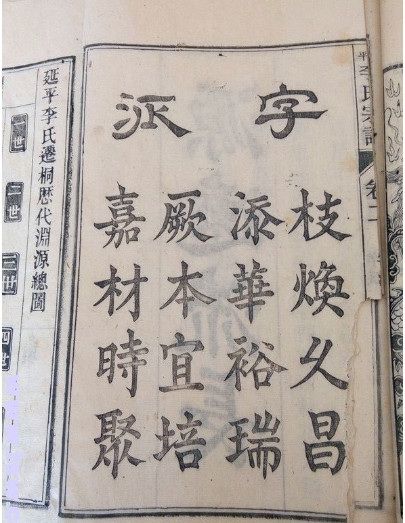 平李氏宗譜
卷二
字派
枝煥久昌
添華裕瑞
厥本宜培
嘉材時聚
延平李氏遷桐歷代淵源總圖
一世
二世
三世
四世